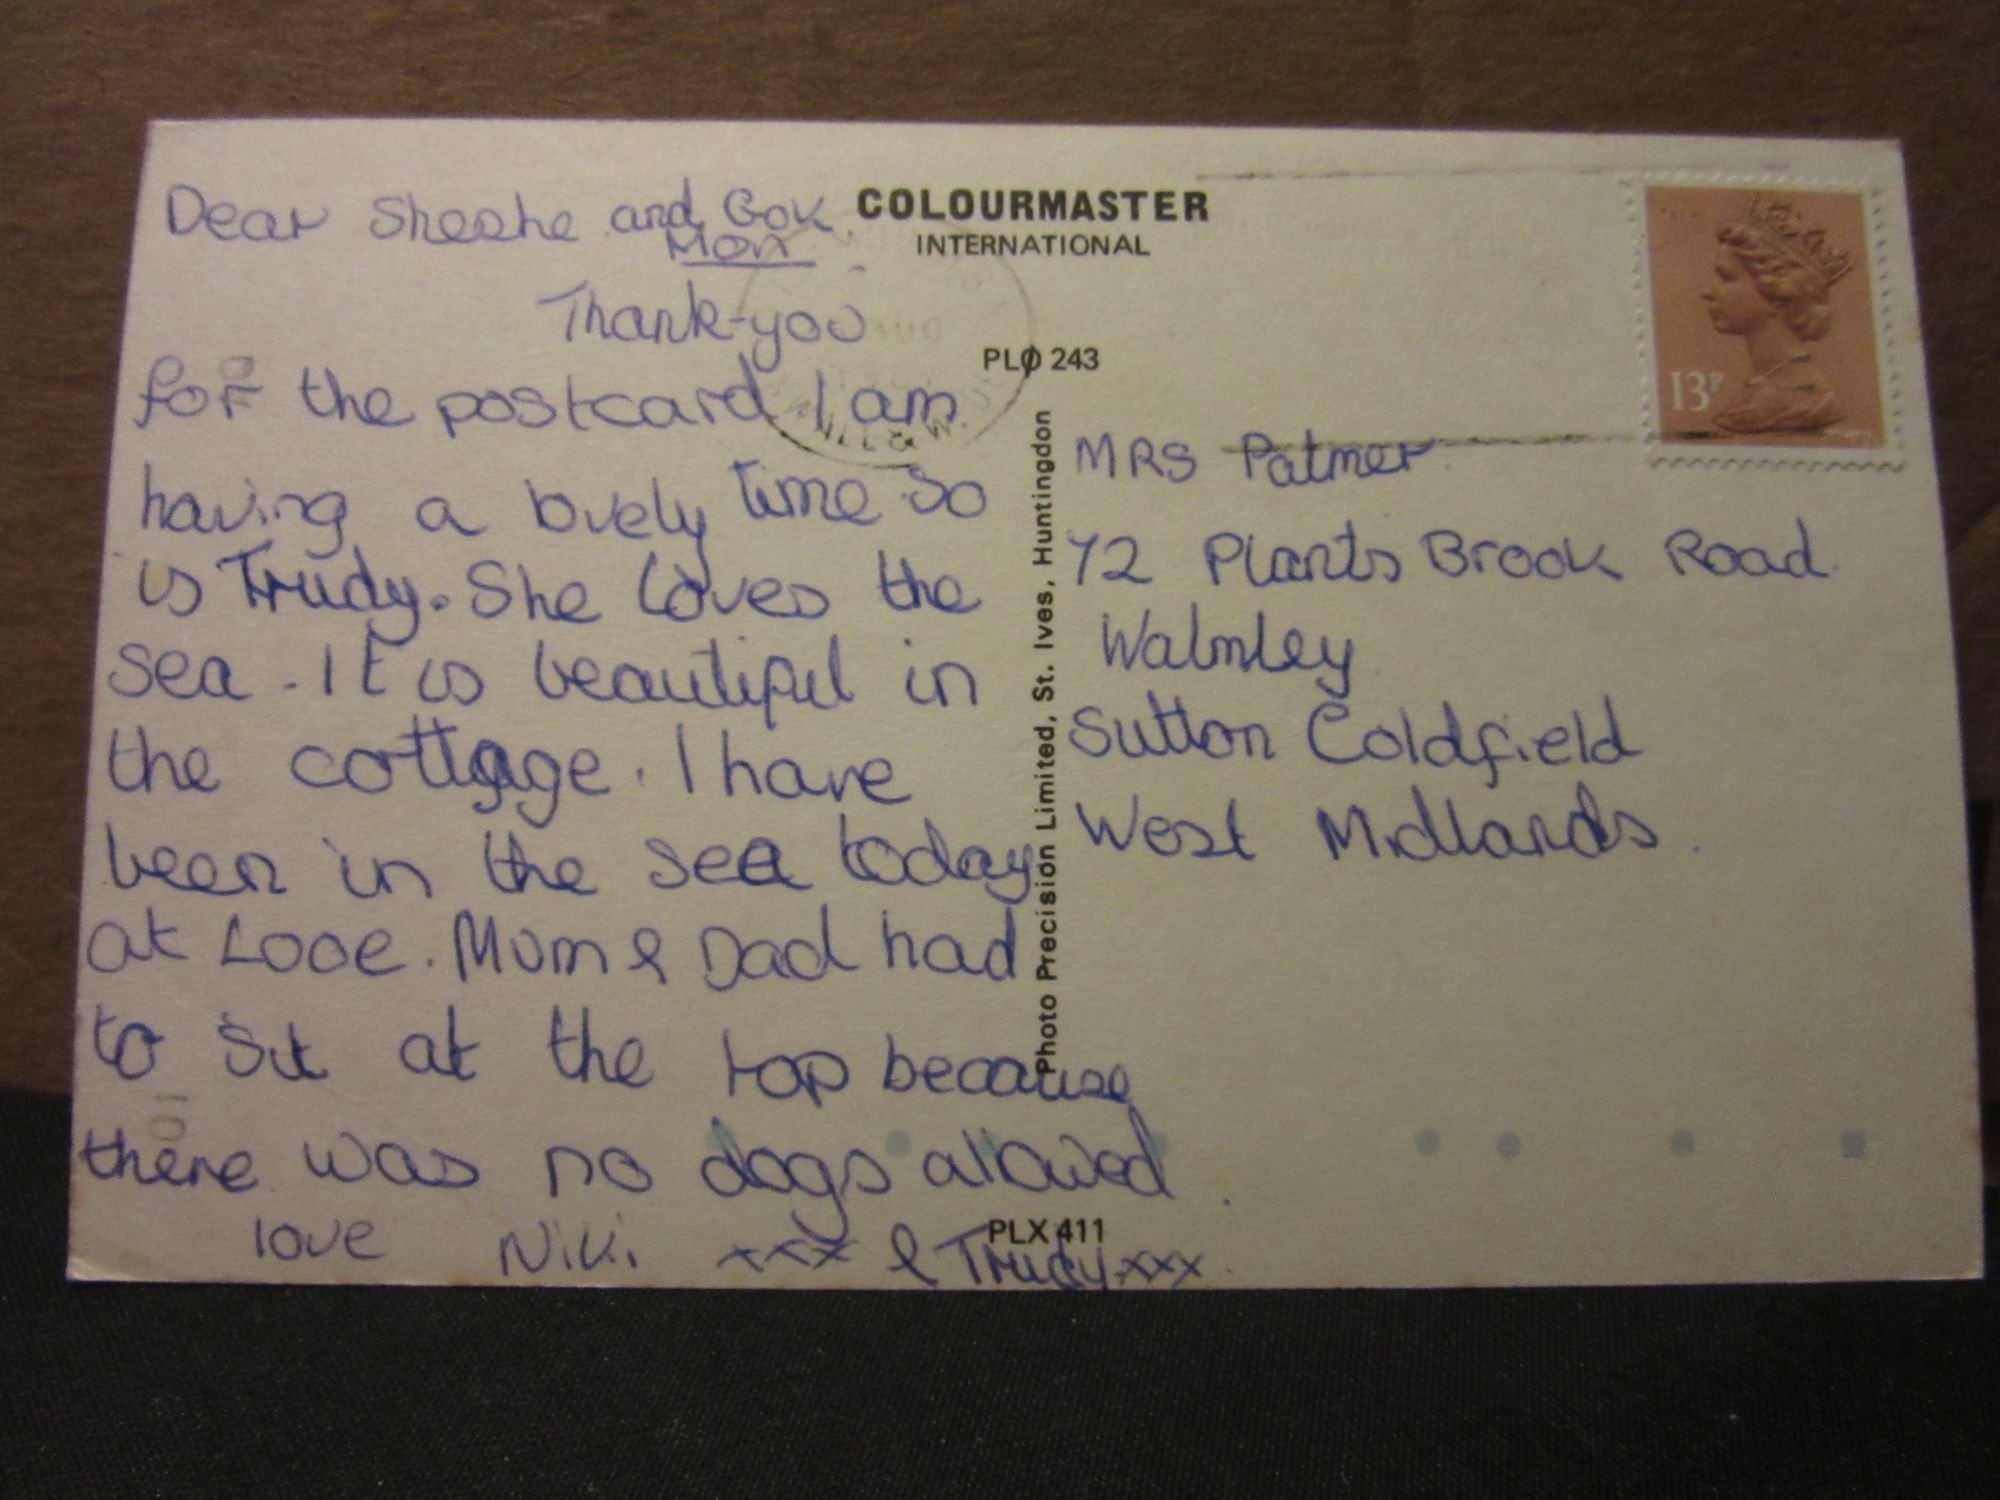 Dear Sheshe and Gok.
Mon
Thank-you
for the postcard I am
having a lovely time so
is Trudy. She loves the
sea. It is beautiful in
the cottage. I have
been in the sea today
at Looe. Mum & Dad had
to sit at the top because
there was no dogs allowed.
love Niki xxx & Trudy xxx.
COLOURMASTER
INTERNATIONAL
PLØ 243
Photo Precision Limited, St. Ives, Huntingdon
PLX 411
13P
MRS Palmer
72 Plants Brook Road.
Walmley
Sutton Coldfield
West Midlands.